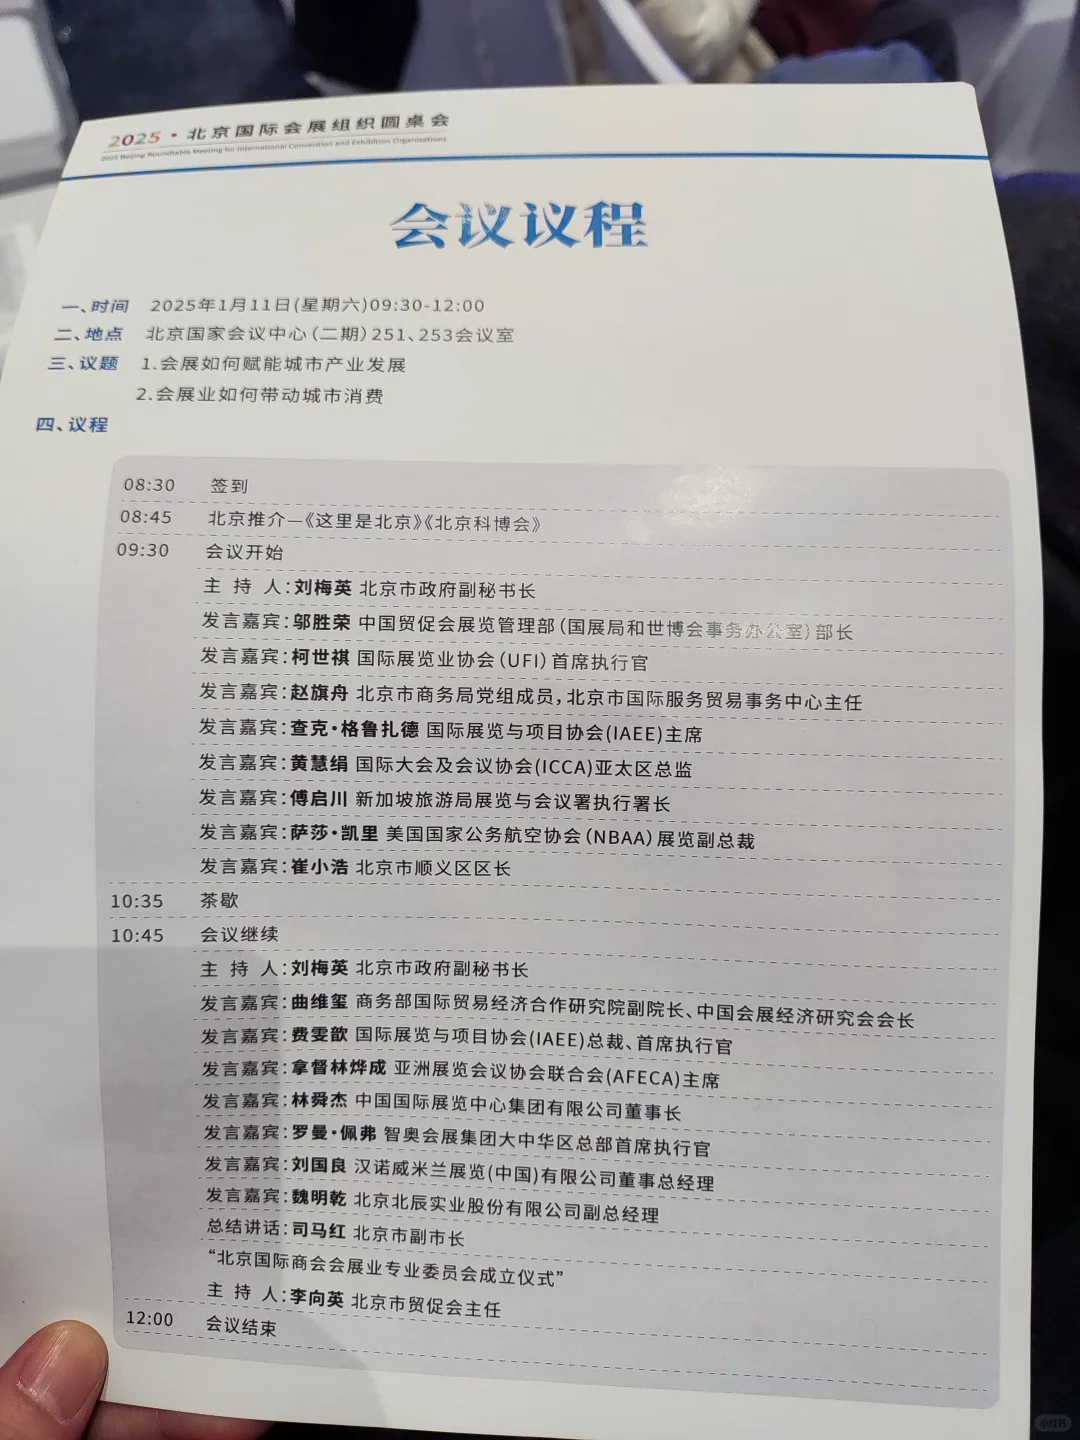 2025·北京国际会展组织圆桌会
2025 Beijing Roundtable Meeting for International Convention and Exhibition Organizations
会议议程
一、时间 2025年1月11日(星期六)09:30-12:00
二、地点 北京国家会议中心(二期)251、253会议室
三、议题 1.会展如何赋能城市产业发展
2.会展业如何带动城市消费
四、议程
08:30 签到
08:45 北京推介—《这里是北京》《北京科博会》
09:30 会议开始
主 持 人:刘梅英 北京市政府副秘书长
发言嘉宾:邬胜荣 中国贸促会展览管理部(国展局和世博会事务办公室)部长
发言嘉宾:柯世祺 国际展览业协会(UFI)首席执行官
发言嘉宾:赵旗舟 北京市商务局党组成员,北京市国际服务贸易事务中心主任
发言嘉宾:查克·格鲁扎德 国际展览与项目协会(IAEE)主席
发言嘉宾:黄慧绢 国际大会及会议协会(ICCA)亚太区总监
发言嘉宾:傅启川 新加坡旅游局展览与会议署执行署长
发言嘉宾:萨莎·凯里 美国国家公务航空协会(NBAA)展览副总裁
发言嘉宾:崔小浩 北京市顺义区区长
10:35 茶歇
10:45 会议继续
主 持 人:刘梅英 北京市政府副秘书长
发言嘉宾:曲维玺 商务部国际贸易经济合作研究院副院长、中国会展经济研究会会长
发言嘉宾:费雯歆 国际展览与项目协会(IAEE)总裁、首席执行官
发言嘉宾:拿督林烨成 亚洲展览会议协会联合会(AFECA)主席
发言嘉宾:林舜杰 中国国际展览中心集团有限公司董事长
发言嘉宾:罗曼·佩弗 智奥会展集团大中华区总部首席执行官
发言嘉宾:刘国良 汉诺威米兰展览(中国)有限公司董事总经理
发言嘉宾:魏明乾 北京北辰实业股份有限公司副总经理
总结讲话:司马红 北京市副市长
“北京国际商会会展业专业委员会成立仪式”
主 持 人:李向英 北京市贸促会主任
12:00 会议结束
小红书